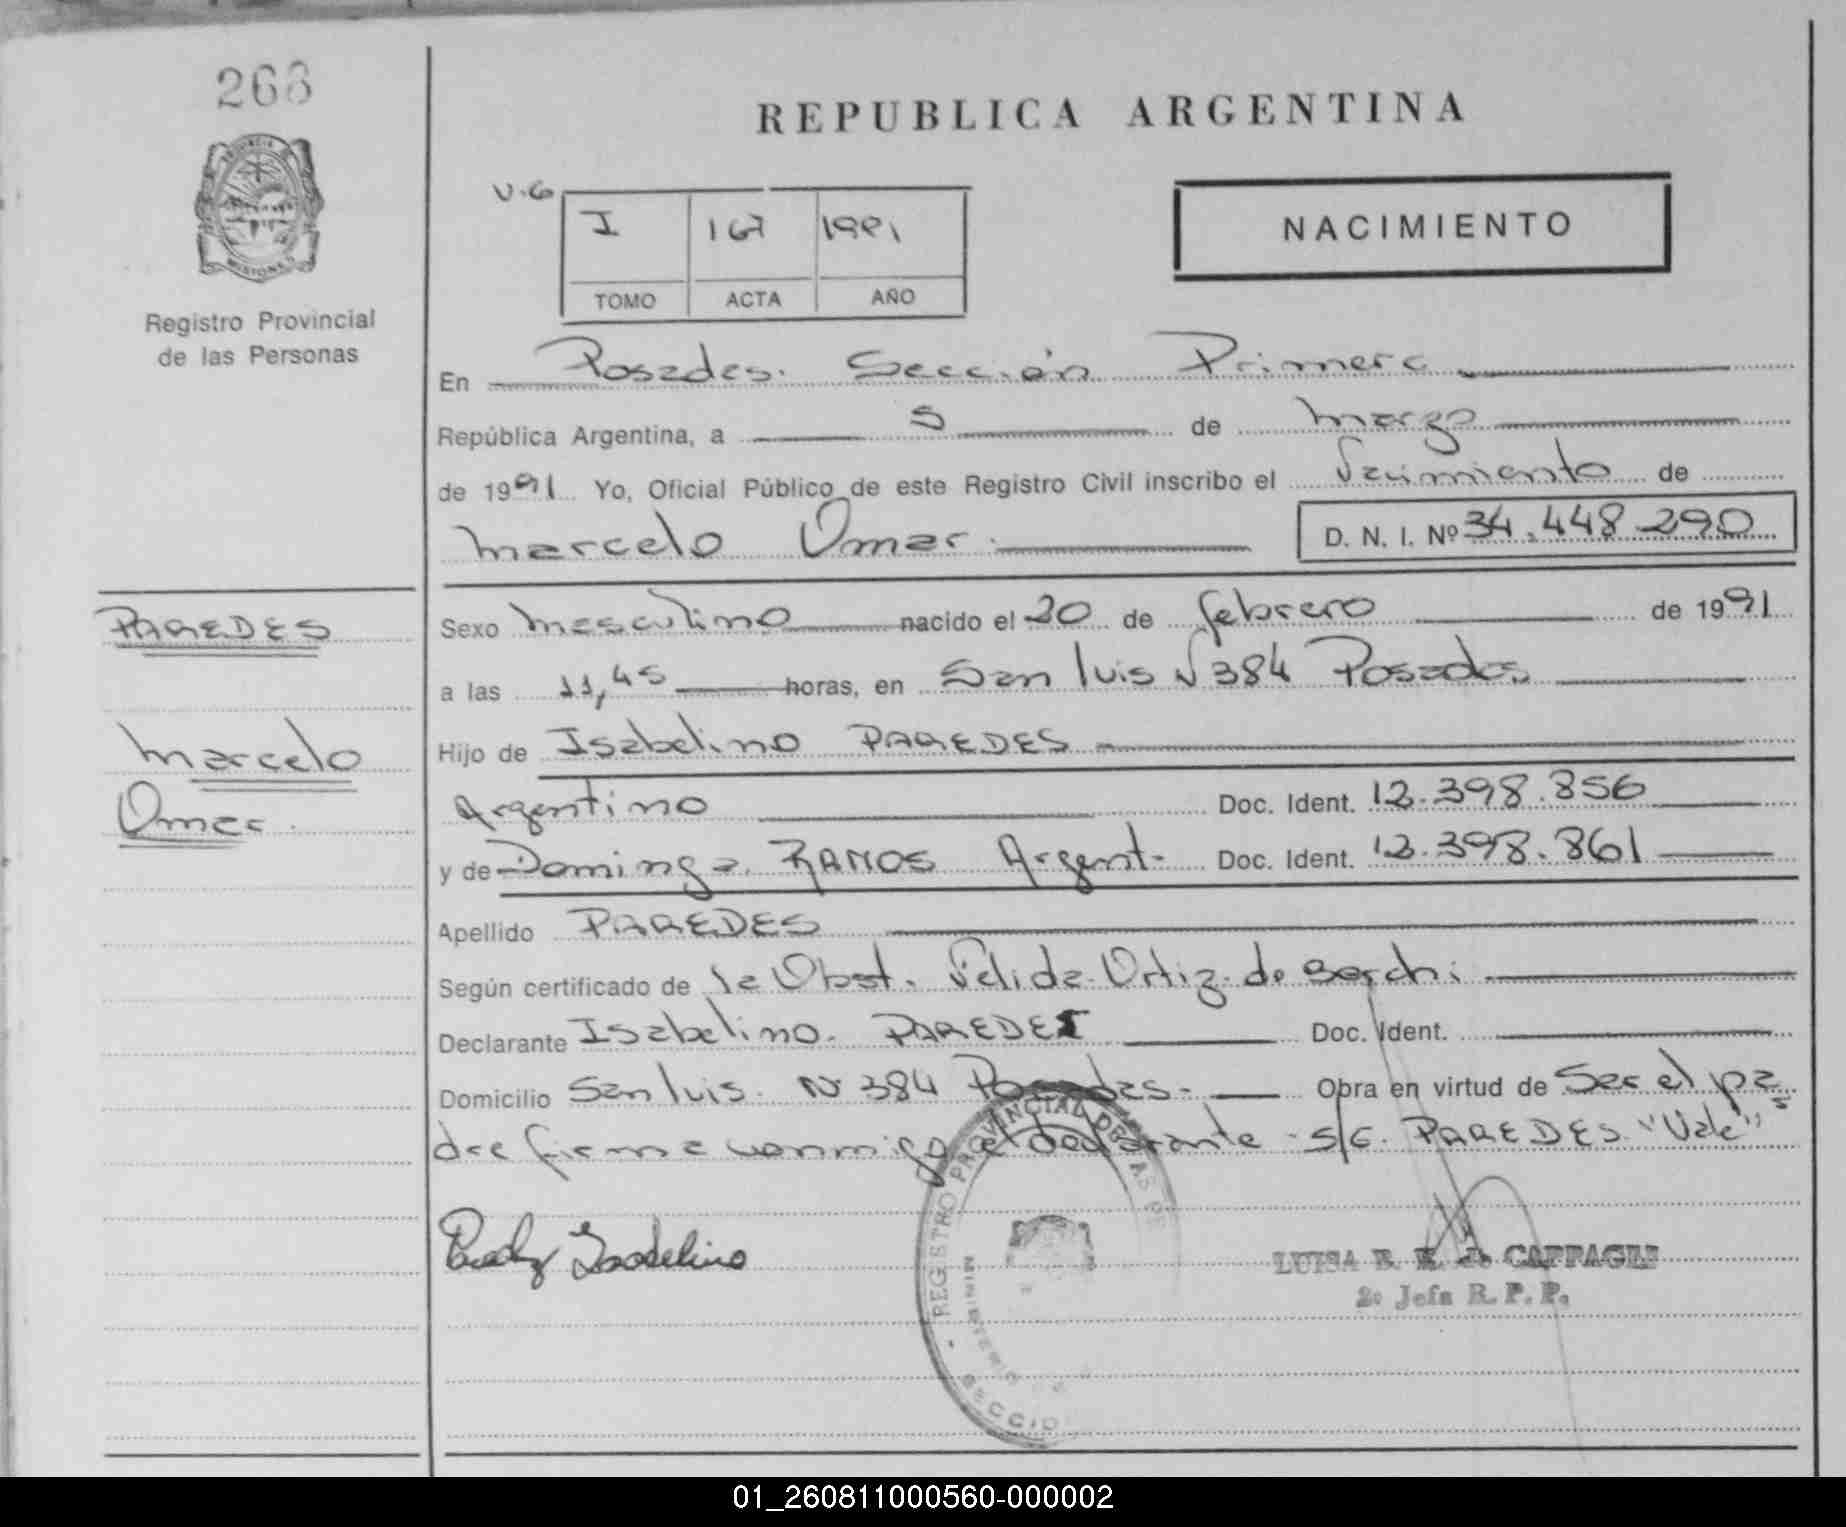 268
REPUBLICA ARGENTINA
MISIONES
Registro Provincial
de las Personas
V.6
I 167 1991
TOMO ACTA AÑO
NACIMIENTO
En Posadas. Sección Primera
República Argentina, a 5 de marzo
de 1991 Yo, Oficial Público de este Registro Civil inscribo el Nacimiento de
Marcelo Omar. D. N. I. Nº 34.448.290
PAREDES
Marcelo
Omar.
Sexo masculino nacido el 20 de febrero de 1991
a las 11,45 horas, en San luis N 384 Posadas
Hijo de Isabelino PAREDES
Argentino Doc. Ident. 12.398.856
y de Dominga RAMOS Argent. Doc. Ident. 12.398.861
Apellido PAREDES
Según certificado de la Obst. Nelida Ortiz de
Declarante Isabelino. PAREDES Doc. Ident.
Domicilio San luis. Nº 384 Posadas- Obra en virtud de Ser el pa
dre firma conmigo el declarante - S/C. PAREDES "Vale"
REGISTRO PROVINCIAL
SECCIO
Isabelino
LUISA E. CAFFAGNI
2º Jefa R. P. P.
01_260811000560-000002